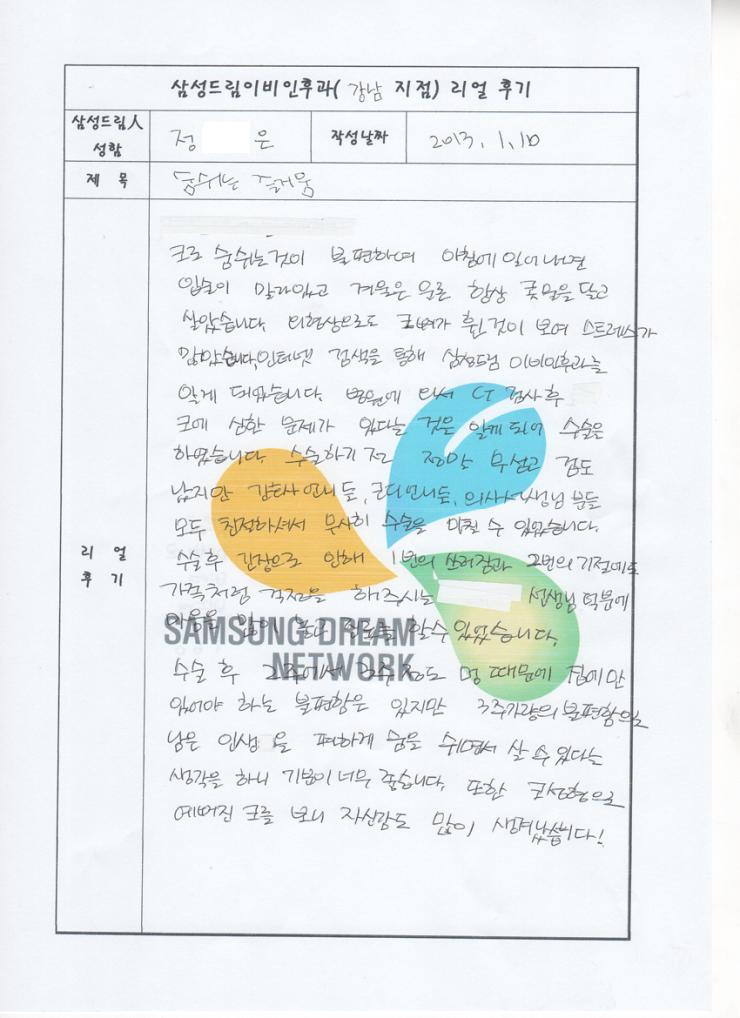 삼성드림이비인후과( 강남 지점) 리얼 후기
삼성드림人 성함
정 은
작성날짜
2013. 1. 10
제 목
숨쉬는 즐거움
리 얼 후 기
코로 숨쉬는것이 불편하여 아침에 일어나면
입술이 말라있고 겨울은 물론 항상 콧물을 달고
살았습니다. 외형상으로도 코뼈가 휜것이 보여 스트레스가
많았습니다. 인터넷 검색을 통해 삼성드림 이비인후과를
알게 되었습니다. 병원에 와서 CT 검사 후
코에 심한 문제가 있다는 것은 알게 되어 수술을
하였습니다. 수술하기 전 정말 무섭고 겁도
났지만 간호사 언니들, 코디언니들, 의사선생님 분들
모두 친절하셔서 무사히 수술을 마칠 수 있었습니다.
수술 후 긴장으로 인해 1번의 쓰러짐과 2번의 기절에도
가족처럼 걱정을 해주시는 선생님 덕분에
마음을 놓고 할수 있었습니다.
SAMSUNG DREAM
NETWORK
수술 후 2주에서 3주 정도 멍 때문에 집에만
있어야 하는 불편함은 있지만 3주가량의 불편함으로
남은 인생을 편하게 숨을 쉬면서 살 수 있다는
생각을 하니 기분이 너무 좋습니다. 또한 코성형으로
예뻐진 코를 보니 자신감도 많이 생겨났습니다!